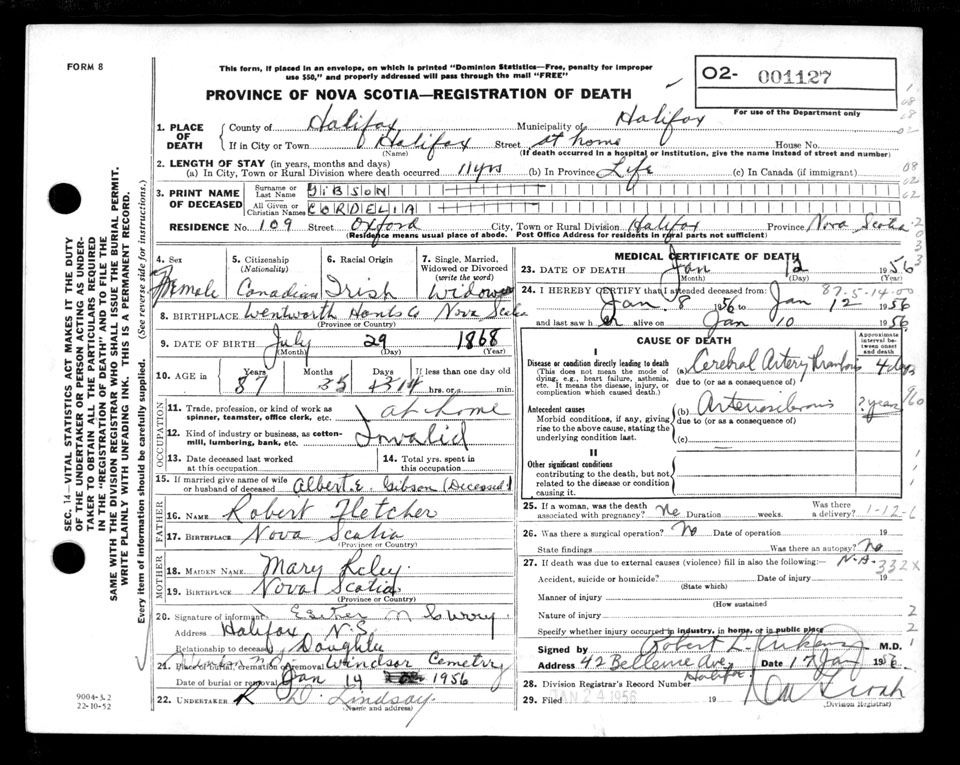 FORM 8
This form, if placed in an envelope, on which is printed "Dominion Statistics—Free, penalty for improper
use $50," and properly addressed will pass through the mail "FREE"
02- 001127
For use of the Department only
PROVINCE OF NOVA SCOTIA—REGISTRATION OF DEATH
1. PLACE OF DEATH
County of Halifax Municipality of Halifax
If in City or Town Halifax Street at home House No.
(Name) (If death occurred in a hospital or institution, give the name instead of street and number)
2. LENGTH OF STAY (in years, months and days)
(a) In City, Town or Rural Division where death occurred 11 yrs (b) In Province Life (c) In Canada (if immigrant)
3. PRINT NAME OF DECEASED
Surname or Last Name GIBSON
All Given or Christian Names CORDELIA
RESIDENCE No. 109 Street Oxford City, Town or Rural Division Halifax Province Nova Scotia
(Residence means usual place of abode. Post Office Address for residents in rural parts not sufficient)
4. Sex
Female
5. Citizenship (Nationality)
Canadian
6. Racial Origin
Irish
7. Single, Married, Widowed or Divorced (write the word)
Widow
8. BIRTHPLACE Wentworth Hants Co Nova Scotia
(Province or Country)
9. DATE OF BIRTH July 29 1868
(Month) (Day) (Year)
10. AGE in Years Months Days If less than one day old
87 5 14 hrs. or min.
OCCUPATION
11. Trade, profession, or kind of work as spinner, teamster, office clerk, etc. at home
12. Kind of industry or business, as cotton-mill, lumbering, bank, etc. Invalid
13. Date deceased last worked at this occupation
14. Total yrs. spent in this occupation
15. If married give name of wife or husband of deceased Albert E. Gibson (Deceased)
FATHER
16. NAME Robert Fletcher
17. BIRTHPLACE Nova Scotia
(Province or Country)
MOTHER
18. MAIDEN NAME Mary
19. BIRTHPLACE Nova Scotia
(Province or Country)
20. Signature of informant Esther M
Address Halifax N.S.
Relationship to deceased Daughter
21. Place of burial, cremation or removal Windsor Cemetery
Date of burial or removal Jan 14 1956
22. UNDERTAKER R D Lindsay
(Name and address)
MEDICAL CERTIFICATE OF DEATH
23. DATE OF DEATH Jan 12 1956
(Month) (Day) (Year)
24. I HEREBY CERTIFY that I attended deceased from: 87-5-14-00
Jan. 8 1956 to Jan 12 1956
and last saw her alive on Jan 10 1956
CAUSE OF DEATH
Approximate interval between onset and death
I
Disease or condition directly leading to death
(This does not mean the mode of dying, e.g., heart failure, asthenia, etc. It means the disease, injury, or complication which caused death.)
(a) Cerebral Artery 4 days
due to (or as a consequence of)
Antecedent causes
Morbid conditions, if any, giving rise to the above cause, stating the underlying condition last.
(b) ? years
due to (or as a consequence of)
(c)
II
Other significant conditions
contributing to the death, but not related to the disease or condition causing it.
25. If a woman, was the death associated with pregnancy? No Duration weeks. Was there a delivery?
1-12-6
26. Was there a surgical operation? No Date of operation 19
State findings Was there an autopsy? No
27. If death was due to external causes (violence) fill in also the following:— N.A. 332X
Accident, suicide or homicide? Date of injury 19
(State which)
Manner of injury
(How sustained
Nature of injury
Specify whether injury occurred in industry, in home, or in public place
Signed by Robert L. M.D.
Address 42 Bellevue Ave, Halifax Date 17 Jan 1956
28. Division Registrar's Record Number
29. Filed JAN 24 1956 19
(Division Registrar)
SEC. 14—VITAL STATISTICS ACT MAKES IT THE DUTY
OF THE UNDERTAKER OR PERSON ACTING AS UNDER-
TAKER TO OBTAIN ALL THE PARTICULARS REQUIRED
IN THE "REGISTRATION OF DEATH" AND TO FILE THE
SAME WITH THE DIVISION REGISTRAR WHO SHALL ISSUE THE BURIAL PERMIT.
WRITE PLAINLY WITH UNFADING INK. THIS IS A PERMANENT RECORD.
Every item of information should be carefully supplied. (See reverse side for instructions.)
9004-3.2
22-10-52